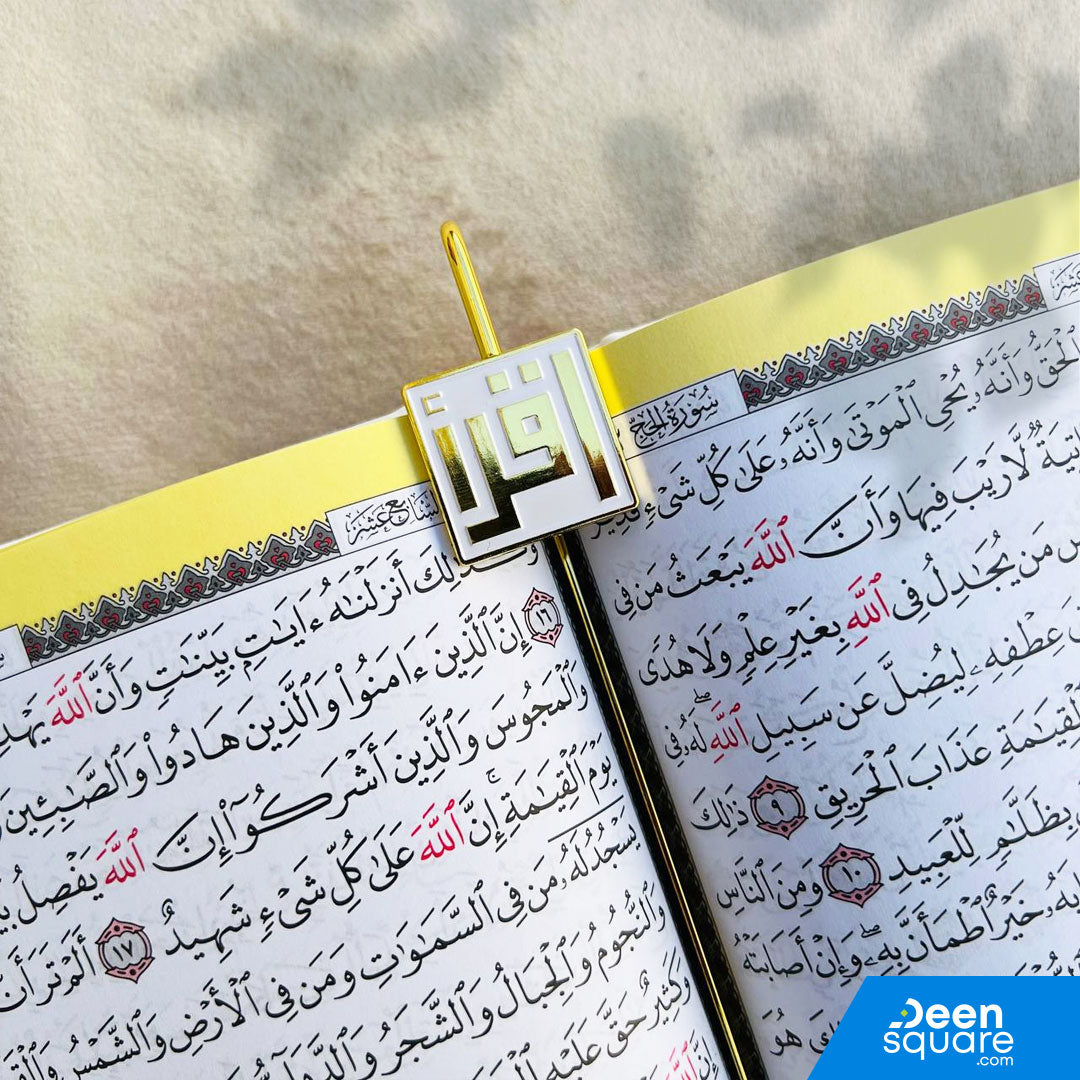 اقرأ
سُورَةُ الحَجّ
الْحَقُّ وَأَنَّهُۥ يُحْىِ ٱلْمَوْتَىٰ وَأَنَّهُۥ عَلَىٰ كُلِّ شَىْءٍ قَدِيرٌ
ءَاتِيَةٌ لَّا رَيْبَ فِيهَا وَأَنَّ ٱللَّهَ يَبْعَثُ مَن فِى
مَن يُجَٰدِلُ فِى ٱللَّهِ بِغَيْرِ عِلْمٍ وَلَا هُدًى
عِطْفِهِۦ لِيُضِلَّ عَن سَبِيلِ ٱللَّهِ ۖ لَهُۥ فِى
ٱلْقِيَٰمَةِ عَذَابَ ٱلْحَرِيقِ ٩ ذَٰلِكَ
بِظَلَّٰمٍ لِّلْعَبِيدِ ١٠ وَمِنَ ٱلنَّاسِ
خَيْرٌ ٱطْمَأَنَّ بِهِۦ ۖ وَإِنْ أَصَابَتْهُ
هُوَ
السَّابِعَ عَشَرَ
وَكَذَٰلِكَ أَنزَلْنَٰهُ ءَايَٰتٍۭ بَيِّنَٰتٍ وَأَنَّ ٱللَّهَ
١٦ إِنَّ ٱلَّذِينَ ءَامَنُوا۟ وَٱلَّذِينَ هَادُوا۟ وَٱلصَّٰبِـِٔينَ
وَٱلْمَجُوسَ وَٱلَّذِينَ أَشْرَكُوٓا۟ إِنَّ ٱللَّهَ يَفْصِلُ
يَوْمَ ٱلْقِيَٰمَةِ ۚ إِنَّ ٱللَّهَ عَلَىٰ كُلِّ شَىْءٍ شَهِيدٌ ١٧ أَلَمْ تَرَ أَنَّ
يَسْجُدُ لَهُۥ مَن فِى ٱلسَّمَٰوَٰتِ وَمَن فِى ٱلْأَرْضِ وَٱلشَّمْسُ
وَٱلنُّجُومُ وَٱلْجِبَالُ وَٱلشَّجَرُ
وَكَثِيرٌ حَقَّ عَلَيْهِ
إِنَّ ٱللَّهَ
Deen
square
.com